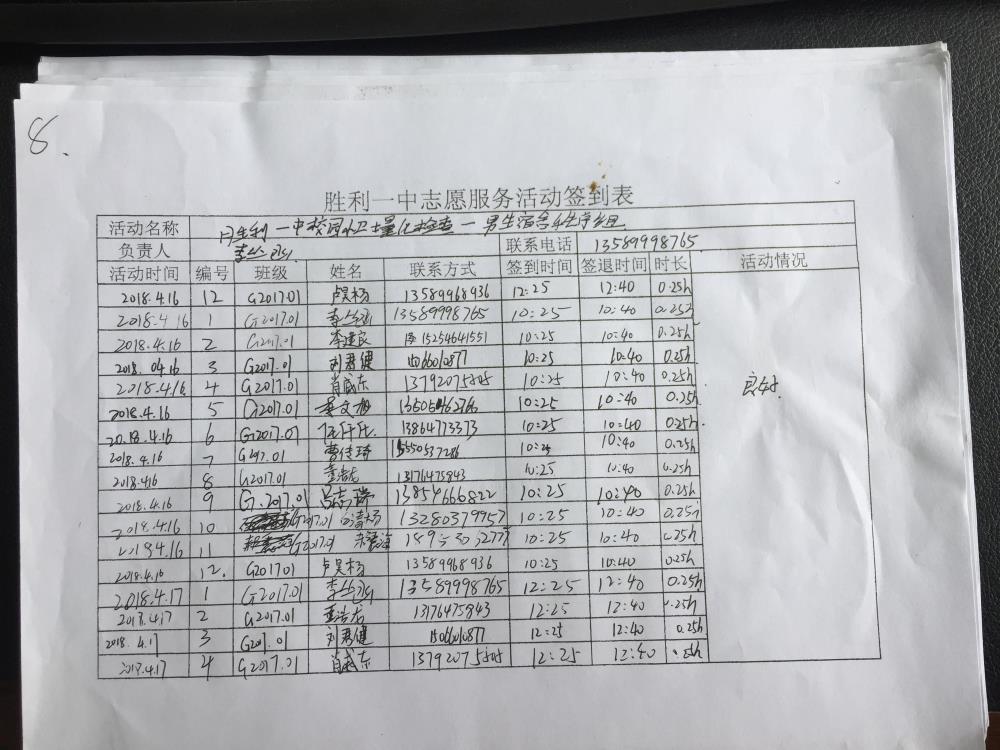 8.
胜利一中志愿服务活动签到表
活动名称 胜利一中校园卫士量化检查一男生宿舍
负责人 联系电话 13589998765
活动时间 编号 班级 姓名 联系方式 签到时间 签退时间 时长 活动情况
2018.4.16 12 G2017.01 卢昊杨 13589968936 12:25 12:40 0.25h
2018.4.16 1 G2017.01 13589998765 10:25 10:40 0.25h
2018.4.16 2 G2017.01 李建良 15254641551 10:25 10:40 0.25h
2018.04.16 3 G2017.01 刘君健 10:25 10:40 0.25h
2018.4.16 4 G2017.01 肖威东 10:25 10:40 0.25h 良好.
2018.4.16 5 G2017.01 10:25 10:40 0.25h
2018.4.16 6 G2017.01 13864773373 10:25 10:40 0.25h
2018.4.16 7 G2017.01 曹传琦 15550537286 10:25 10:40 0.25h
2018.4.16 8 G2017.01 13176475843 10:25 10:40 0.25h
2018.4.16 9 G.2017.01 13854666822 10:25 10:40 0.25h
2018.4.16 10 G2017.01 13280379957 10:25 10:40 0.25h
2018.4.16 11 G2017.01 10:25 10:40 0.25h
2018.4.16 12. G2017.01 卢昊杨 13589968936 10:25 10:40 0.25h
2018.4.17 1 G2017.01 13589998765 12:25 12:40 0.25h
2018.4.17 2 G2017.01 13176475843 12:25 12:40 0.25h
2018.4.17 3 G201.01 刘君健 12:25 12:40 0.25h
2018.4.17 4 G2017.01 肖威东 12:25 12:40 0.25h